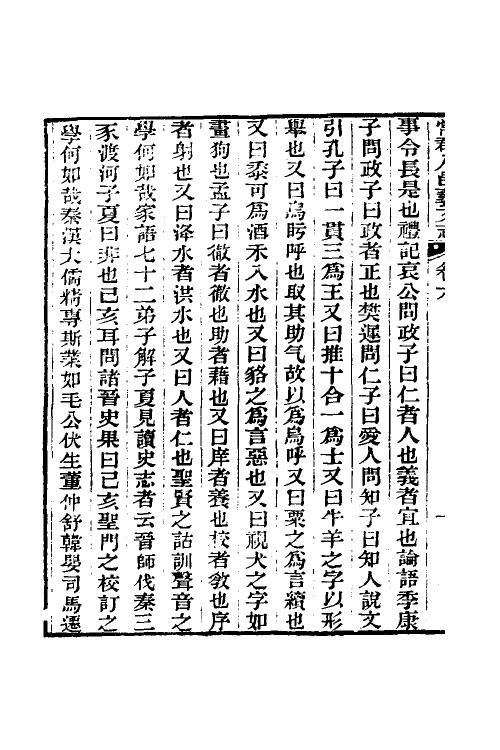 常郡八邑藝文志 卷六
事令長是也禮記哀公問政子曰仁者人也義者宜也論語季康
子問政子曰政者正也樊遲問仁子曰愛人問知子曰知人說文
引孔子曰一貫三爲王又曰推十合一爲士又曰牛羊之字以形
舉也又曰烏盱呼也取其助气故以爲烏呼又曰粟之爲言續也
又曰黍可爲酒禾入水也又曰貉之爲言惡也又曰視犬之字如
畫狗也孟子曰徹者徹也助者藉也又曰庠者養也校者敎也序
者射也又曰洚水者洪水也又曰人者仁也聖賢之詁訓聲音之
學何如哉家語七十二弟子解子夏見讀史志者云晉師伐秦三
豕渡河子夏曰非也己亥耳問諸晉史果曰己亥聖門之校訂之
學何如哉秦漢大儒精專斯業如毛公伏生董仲舒韓嬰司馬遷